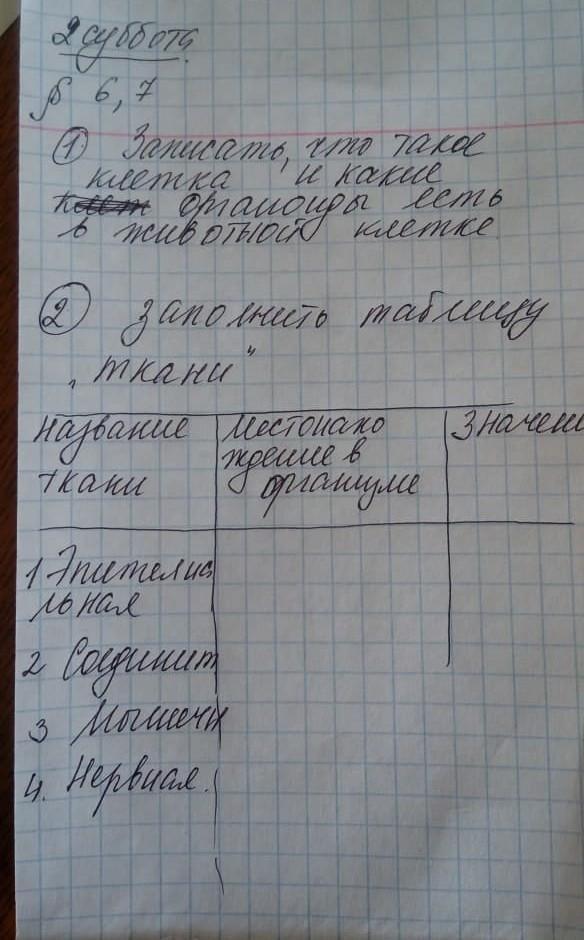 2 суббота
§ 6, 7
① Записать, что такое
клетка и какие
органоиды есть
в животной клетке
② Заполнить таблицу
„Ткани"
Название ткани | Местонахождение в организме | Значени
1 Эпителиа
льная
2 Соединит
3 Мышечн
4. Нервная.